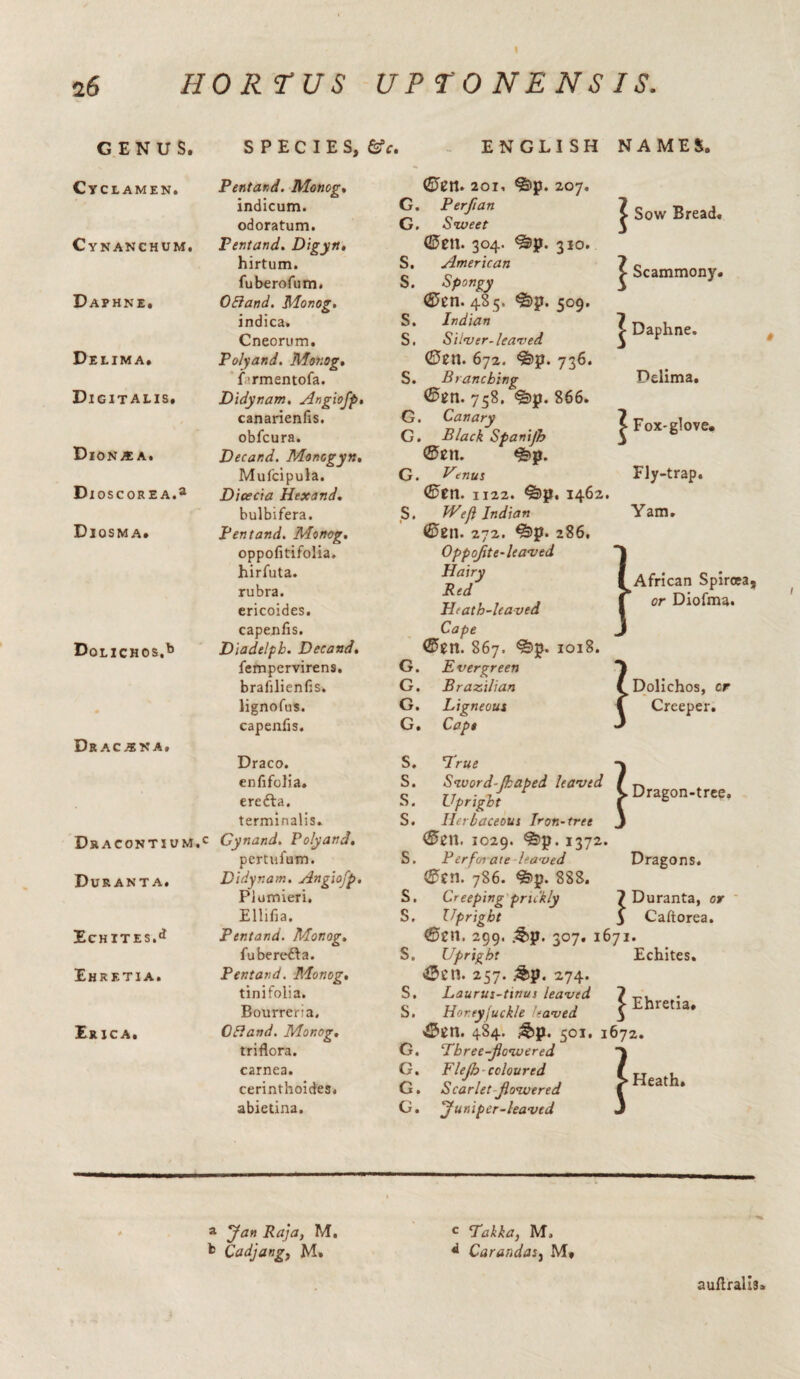 26 HORTUS UPTONENSIS.
GENUS. SPECIES, &c. ENGLISH NAMES.
CYCLAMEN. Pentand. Monog. Gen. 201, Sp. 207.
indicum. G. Perſian } Sow Bread.
odoratum. G. Sweet
CYNANCHUM. Pentand. Digyn. Gen. 304. Sp. 310.
hirtum. S. American } Scammony.
ſuberoſum. S. Spongy
DAPHNE. Octand. Monog. Gen. 485. Sp. 509.
indica. S. Indian } Daphne.
Cneorum. S. Silver-leaved
DELIMA. Polyand. Monog. Gen. 672. Sp. 736.
ſarmentoſa. S. Branching Delima.
DIGITALIS. Didynam. Angioſp. Gen. 758. Sp. 866.
canarienſis. G. Canary } Fox-glove.
obſcura. G. Black Spaniſh
DIONÆA. Decand. Monogyn. Gen. Sp.
Muſcipula. G. Venus Fly-trap.
DIOSCOREA.a Diœcia Hexand. Gen. 1122. Sp. 1462.
bulbifera. S. Weſt Indian Yam.
DIOSMA. Pentand. Monog. Gen. 272. Sp. 286.
oppoſitifolia. Oppoſite-leaved
hirſuta. Hairy
rubra. Red } African Spirœa,
ericoides. Heath-leaved or Dioſma.
capenſis. Cape
DOLICHOS.b Diadelph. Decand. Gen. 867. Sp. 1018.
ſempervirens. G. Evergreen
braſilienſis. G. Brazilian } Dolichos, or
lignoſus. G. Ligneous Creeper.
capenſis. G. Cape
DRACÆNA.
Draco. S. True
enſifolia. S. Sword-ſhaped leaved } Dragon-tree.
erecta. S. Upright
terminalis. S. Herbaceous Iron-tree
DRACONTIUM.c Gynand. Polyand. Gen. 1029. Sp. 1372.
pertuſum. S. Perforate leaved Dragons.
DURANTA. Didynam. Angioſp. Gen. 786. Sp. 888.
Plumieri. S. Creeping prickly } Duranta, or
Elliſia. S. Upright Caſtorea.
ECHITES.d Pentand. Monog. Gen. 299. Sp. 307. 1671.
ſuberecta. S. Upright Echites.
EHRETIA. Pentand. Monog. Gen. 257. Sp. 274.
tinifolia. S. Laurus-tinus leaved } Ehretia.
Bourreria. S. Honeyſuckle leaved
ERICA. Octand. Monog. Gen. 484. Sp. 501. 1672.
triflora. G. Three-flowered
carnea. G. Fleſh-coloured } Heath.
cerinthoides. G. Scarlet-flowered
abietina. G. Juniper-leaved
a Jan Raja, M. c Takka, M.
b Cadjang, M. d Carandas, M.
auſtralis.